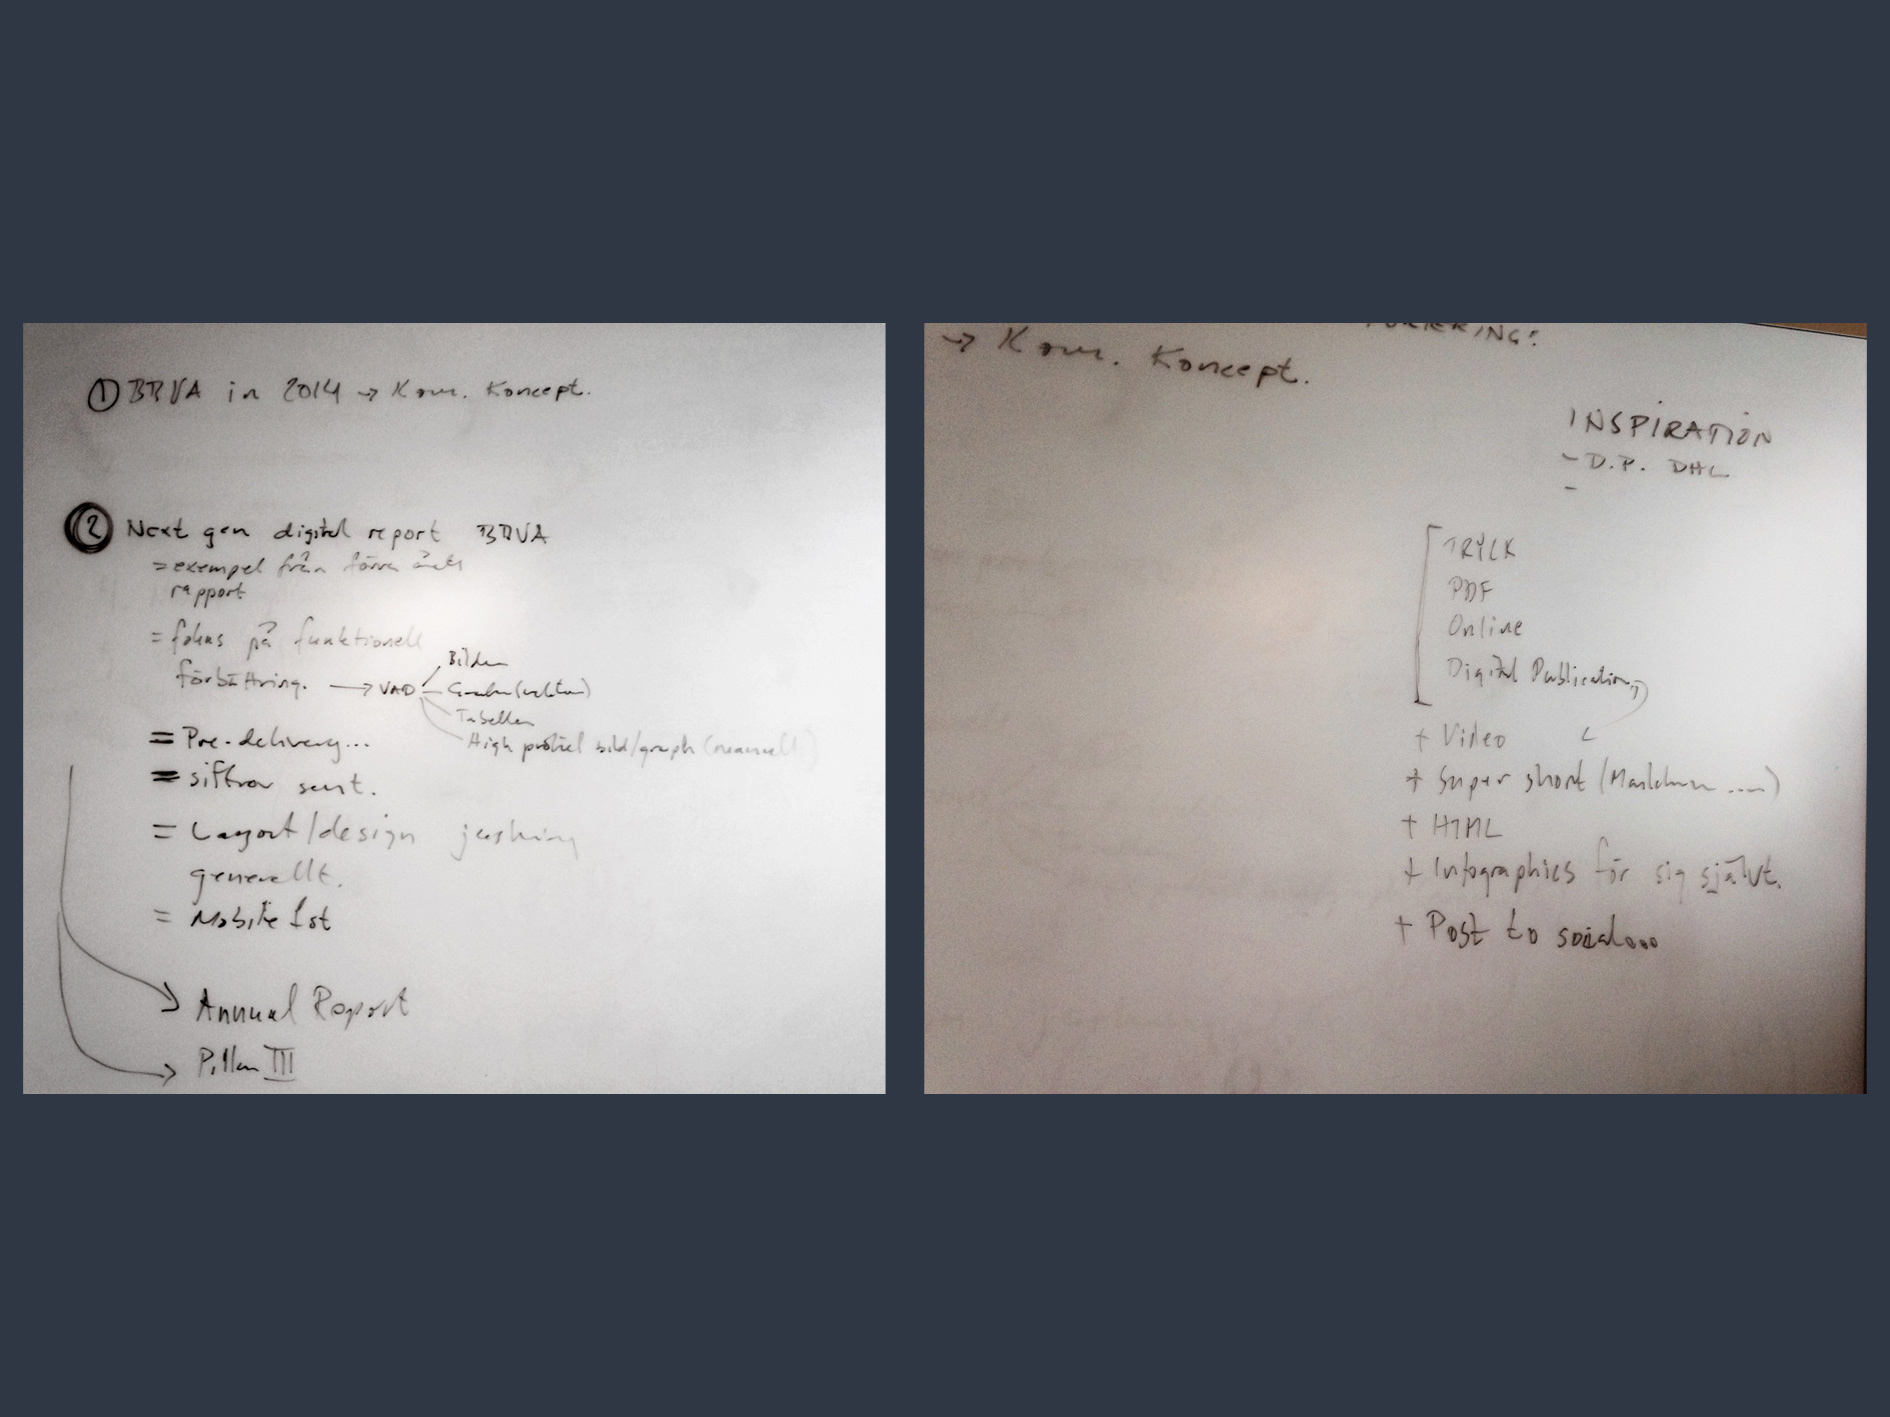 ① BBVA in 2014 → Kom. Koncept.
② Next gen digital report BBVA
= exempel från förra årets
rapport
= fokus på funktionell
förbättring. → VAD
Bilder
Tabeller
High profiel bild/graph (manuell)
= Pre-delivery...
= siffror sent.
= Layout/design
generellt.
= Mobile 1st
→ Annual Report
→ Pillar III
→ Kom. Koncept.
INSPIRATION
- D.P. DHL
-
TRYCK
PDF
Online
Digital Publication
+ Video
+ Super short (
+ HTML
+ Infographics för sig självt.
+ Post to social...